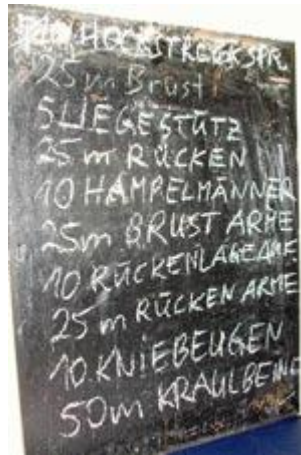 10 HOCKSTRECKSPR.
25 m Brust
5 LIEGESTÜTZ
25 m RÜCKEN
10 HAMPELMÄNNER
25m BRUST ARME
10 RÜCKENLAGE
25 m RÜCKEN ARME
10 KNIEBEUGEN
50m KRAULBEINE